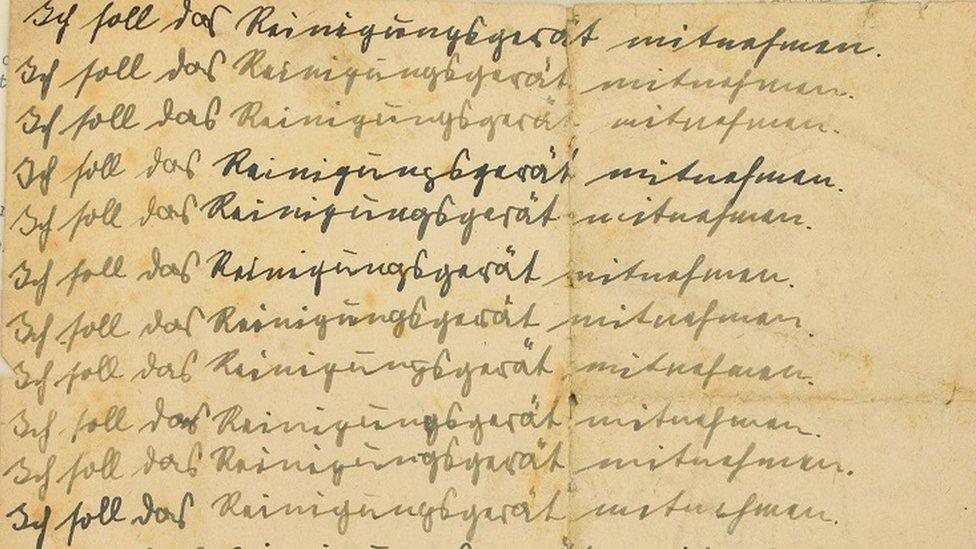 Ich soll das Reinigungsgerät mitnehmen.
Ich soll das Reinigungsgerät mitnehmen.
Ich soll das Reinigungsgerät mitnehmen.
Ich soll das Reinigungsgerät mitnehmen.
Ich soll das Reinigungsgerät mitnehmen.
Ich soll das Reinigungsgerät mitnehmen.
Ich soll das Reinigungsgerät mitnehmen.
Ich soll das Reinigungsgerät mitnehmen.
Ich soll das Reinigungsgerät mitnehmen.
Ich soll das Reinigungsgerät mitnehmen.
Ich soll das Reinigungsgerät mitnehmen.